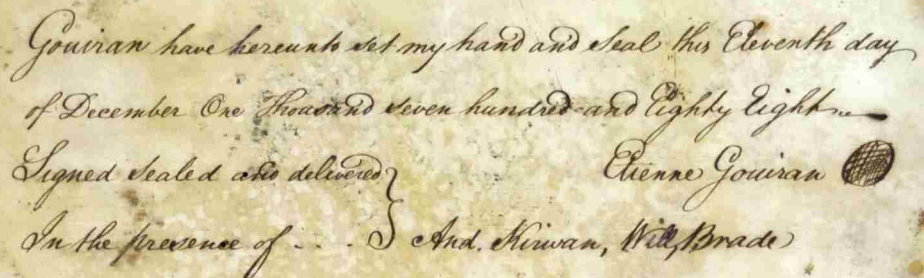 Gouiran have hereunto set my hand and Seal this Eleventh day
of December One Thousand seven hundred and Eighty Eight
Signed Sealed and delivered Etienne Gouiran
In the presence of ... And. Kirwan, Will, Brade